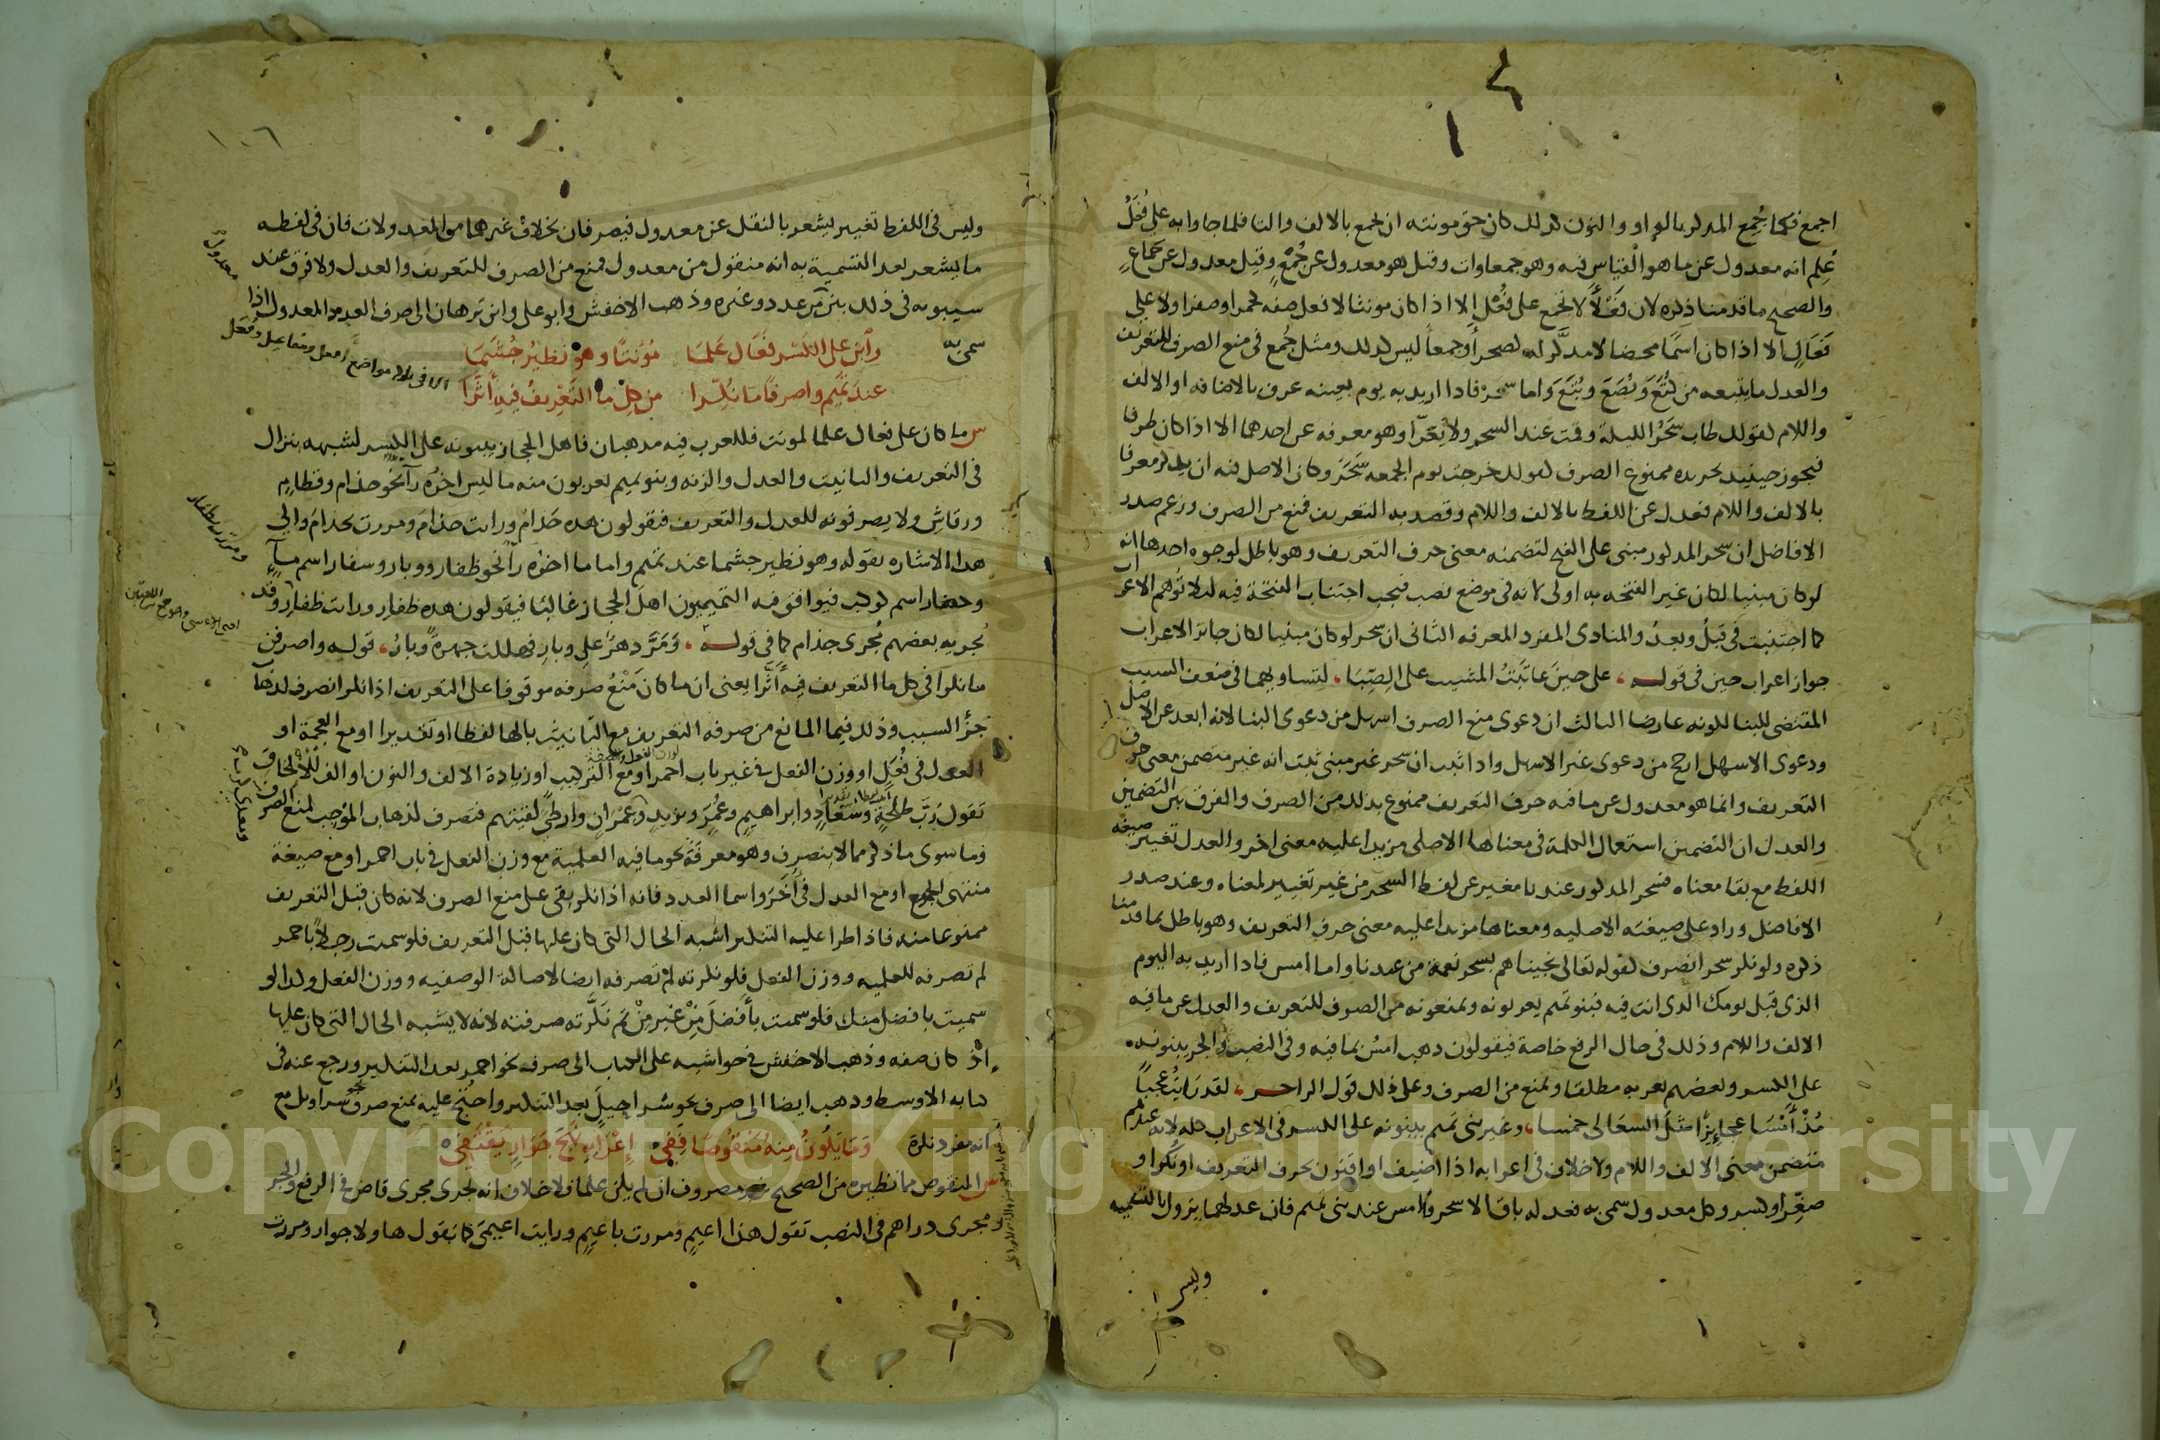 اجمع فكما جُمع المذكر بالواو والنون كذلك كان حق مونثه ان يجمع بالالف والتا فلما جاوا به على فُعَلُ
عُلِم انه معدول عن ما هو القياس فيه وهو جمعاوات وقيل هو معدول عن جُمْعٍ وقيل معدول عن جماعٍ
والصحيح ما قدمنا ذِكره لان فَعْلاً لا يجمع على فُعْلٍ الا اذا كان مونثا لافعل صفه كحمرا وصفرا ولا على
فَعَالٍ الا اذا كان اسمًا محضا لا مذكَّر له كصحرا وجمعاً ليس كذلك ومثل جُمع في منع الصرف للتعريف
والعدل ما يتبعه من كُتَعَ وَبُصَعَ وبُتَعَ وَاما سحرْ فاذا اريد به يوم بعينه عرف بالاضافه او الالف
واللام كقولك طاب سَحَرُ الليلة وقمت عند السحر ولا يُعَرّا وهو معرفه عن احدهما الا اذا كان ظرفا
فيجوز حينيذ تجريده ممنوع الصرف كقولك خرجت يوم الجمعه سَحَرَ وكان الاصل فيه ان يذكر معرفا
بالالف واللام فعدل عن اللفظ بالالف واللام وقصد به التعريف فمنع من الصرف وزعم صدر
الافاضل ان سحر المذكور مبنى على الفتح لتضمنه معنى حرف التعريف وهو باطل لوجوه احدها انه
لو كان مبنيا لكان غير الفتحه به اولى لانه في موضع نصب فيجب اجتناب الفتحة فيه لئلا تُوهم الاعراب
كما اجتنبت في قَبلُ وبعدُ والمنادى المفرد المعرفه الثانى ان سحر لو كان مبنيا لكان جائز الاعراب
جواز اعراب حين في قوله ، على حينَ عاتَبْتُ المشيب على الصِّبَا ، لتساويهما في ضعف السبب
المقتضى للبنا لكونه عارضا الثالث ان دعوى منع الصرف اسهل من دعوى البنا لانه ابعد عن الاصل
ودعوى الاسهل ارجح من دعوى غير الاسهل واذا ثبت ان سحر غير مبنى ثبت انه غير متضمن معنى حرف
التعريف وانما هو معدول عن ما فيه حرف التعريف ممنوع بذلك من الصرف والفرق بين التضمين
والعدل ان التضمين استعمال الكلمة في معناها الاصلى مزيدا عليه معنى اخر والعدل تغيير صيغة
اللفظ مع بقا معناه فسحر المذكور عندنا مغير عن لفظ السحر من غير تغيير لمعناه وعند صدر
الافاضل وارد على صيغته الاصليه ومعناها مزيدا عليه معنى حرف التعريف وهو باطل بما قدمنا
ذكره ولو نكر سحر انصرف كقوله تعالى نجيناهم بسحر نعمة من عندنا واما امس فاذا اريد به اليوم
الذى قبل يومك الذى انت فيه فبنو تميم يعربونه ويمنعونه من الصرف للتعريف والعدل عن ما فيه
الالف واللام وذلك في حال الرفع خاصة فيقولون ذهب امسُ بما فيه وفي النصب والجر يبنونه
على الكسر وبعضهم يعربه مطلقا ويمنع من الصرف وعلى ذلك قول الراجز ، لقد رَايتُ عجباً
مُذْ أَمْسَا عجايزًا مثلَ السعَالى خمسا ، وغير بنى تميم يبنونه على الكسر في الاعراب كله لانه عندهم
متضمن معنى الالف واللام ولا خلاف في اعرابه اذا اضيف او اقترن بحرف التعريف او نكرا و
صغِّر او كسر وكل معدول سمى به فعدله باق الا سحر وامس عند بنى تميم فان عدلهما يزول بالتسميه
وليس
١٠٦
وليس في اللفظ تغيير يشعر بالنقل عن معدول فيصرفان بخلاف غيرهما من المعدولات فان في لفظه
ما يشعر بعد التسمية به انه منقول من معدول فمنع من الصرف للتعريف والعدل ولا فرق عند
سيبويه في ذلك بين عدد وغيره وذهب الاخفش وابو على وابن برهان الى صرف العدد المعدول اذا
سمى به وابنِ على الكسر فَعَالِ عَلَمَا مُؤنثًا وهو نظيرُ جُشَمَا
عند تَمِيمٍ واصرفَا مَا نُكِّرا من كلِ ما التَّعرِيفُ فيهِ أثَّرَا
س ما كان على فعال علما لمونث فللعرب فيه مذهبان فاهل الحجاز يبنونه على الكسر لشبهه بنزال
في التعريف والتانيث والعدل والزنه وبنو تميم يعربون منه ما ليس اخرُه رآ نحو حذام وقطامِ
ورقاشِ ولا يصرفونه للعدل والتعريف فيقولون هذه حذامُ ورايت حذام ومررت بحذامَ والى
هذا الاشاره بقوله وهو نظير جشما عند تميم واما ما اخره رآ نحو ظفار ووبار وسفار اسم مآءٍ
وحضار اسم كوكب فيوافق فيه التميميون اهل الحجاز غالبًا فيقولون هذه ظفارِ ورايت ظفارِ وقد
يُجريه بعضهم مُجرى حذام كما في قوله ، وَمَرَّ دهرٌ على وبارِ فهلكت جهرةً وبارُ ، قوله واصرفن
ما نكرا في كل ما التعريف فيه أثَّرا يعنى ان ما كان مَنْعُ صرفه موقوفا على التعريف اذا نكر انصرف لذهاب
جزُ السبب وذلك فيما المانع من صرفه التعريف مع التانيث بالها لفظا او تقديرا او مع العجمة او
العدل في فُعَلٍ او وزن الفعل في غير باب احمر او مع التركيب او زيادة الالف والنون او الف للالحاق
تقول رُبَّ طلحةٍ وسُعَادٍ وابراهيمٍ وعُمَرٍ ويزيدٍ وعمرانٍ وارطىً لقيتهم فتصرف لذهاب المُوجب لمنع الصرف
وما سوى ما ذكر مما لا ينصرف وهو معرفة نحو ما فيه العلمية مع وزن الفعل في باب احمر او مع صيغة
منتهى الجموع او مع العدل في أُخَرَ واسما العدد فانه اذا نكر بقى على منع الصرف لانه كان قبل التعريف
ممنوعا منه فاذا طرا عليه التنكير اشبه الحال التى كان عليها قبل التعريف فلو سميت رجلاً باحمر
لم تصرفه للعلميه ووزن الفعل فلو نكرته لم تصرفه ايضا لاصالة الوصفيه ووزن الفعل وكذا لو
سميت بافضل منك فلو سميت بأَفضلَ مِنْ غير مِنْ ثم نكَّرته صرفته لانه لا يشبه الحال التى كان عليها
اذْ كان صفه وذهب الاخفش في حواشيه على الكتاب الى صرف نحو احمر بعد التنكير ورجع عنه في
كتابه الاوسط وذهب ايضا الى صرف نحو شراحيلَ بعد التنكير واحتُج عليه بمنع صرف سراويل مع
انه مفرد نكرة وَمَا يَكُونُ مِنهُ مَنقُوصًا فَفِي إِعْرَابِهِ نَهْجَ جَوَارٍ يَقْتَفِي
س المنقوص مما نظيره من الصحيح غير مصروف ان لم يكن علما فلا خلاف انه يجرى مجرى قاض في الرفع والجر
ومجرى دراهم في النصب تقول هذا اعيمٍ ومررت باعيمٍ ورايت اعيمىَ كما تقول هاولا جوارٍ ومررت